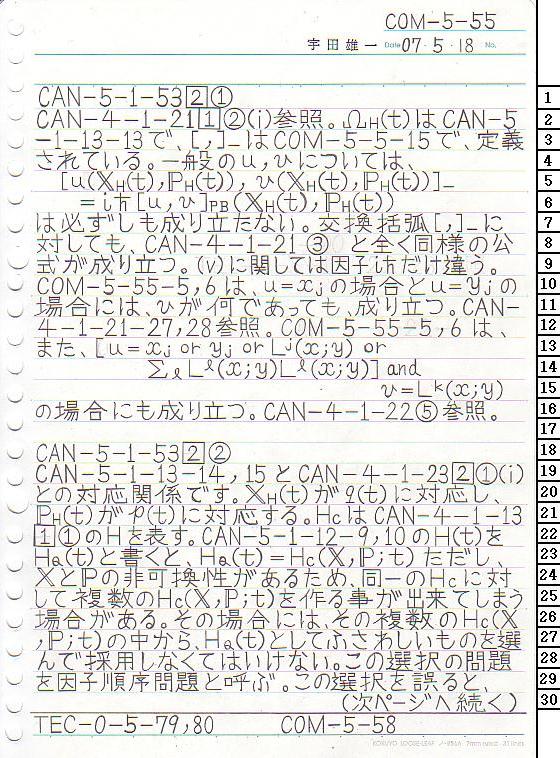 COM-5-55
宇田雄一 Date 07・5・18 No.
CAN-5-1-53[2]①
CAN-4-1-21[1]②(i)参照。ΩH(t)はCAN-5
-1-13-13で、[,]-はCOM-5-5-15で、定義
されている。一般のu,vについては、
[u(XH(t),PH(t)), v(XH(t),PH(t))]-
=iħ[u,v]PB(XH(t),PH(t))
は必ずしも成り立たない。交換括弧[,]-に
対しても、CAN-4-1-21-③ と全く同様の公
式が成り立つ。(v)に関しては因子iħだけ違う。
COM-5-55-5,6は、u=xjの場合とu=yjの
場合には、vが何であっても、成り立つ。CAN-
4-1-21-27,28参照。COM-5-55-5,6は、
また、[u=xj or yj or Lj(x;y) or
ΣℓLℓ(x;y)Lℓ(x;y)] and
v=Lk(x;y)
の場合にも成り立つ。CAN-4-1-22⑤参照。
CAN-5-1-53[2]②
CAN-5-1-13-14,15とCAN-4-1-23[2]①(i)
との対応関係です。XH(t)がq(t)に対応し、
PH(t)がp(t)に対応する。HcはCAN-4-1-13
[1]①のHを表す。CAN-5-1-12-9,10のH(t)を
Ha(t)と書くと、Ha(t)=Hc(X,P;t) ただし、
XとPの非可換性があるため、同一のHcに対
して複数のHc(X,P;t)を作る事が出来てしまう
場合がある。その場合には、その複数のHc(X
,P;t)の中から、Ha(t)としてふさわしいものを選
んで採用しなくてはいけない。この選択の問題
を因子順序問題と呼ぶ。この選択を誤ると、
(次ページへ続く)
TEC-0-5-79,80 COM-5-58
KOKUYO LOOSE-LEAF ノ-836A 7mm ruled 31 lines
1
2
3
4
5
6
7
8
9
10
11
12
13
14
15
16
17
18
19
20
21
22
23
24
25
26
27
28
29
30